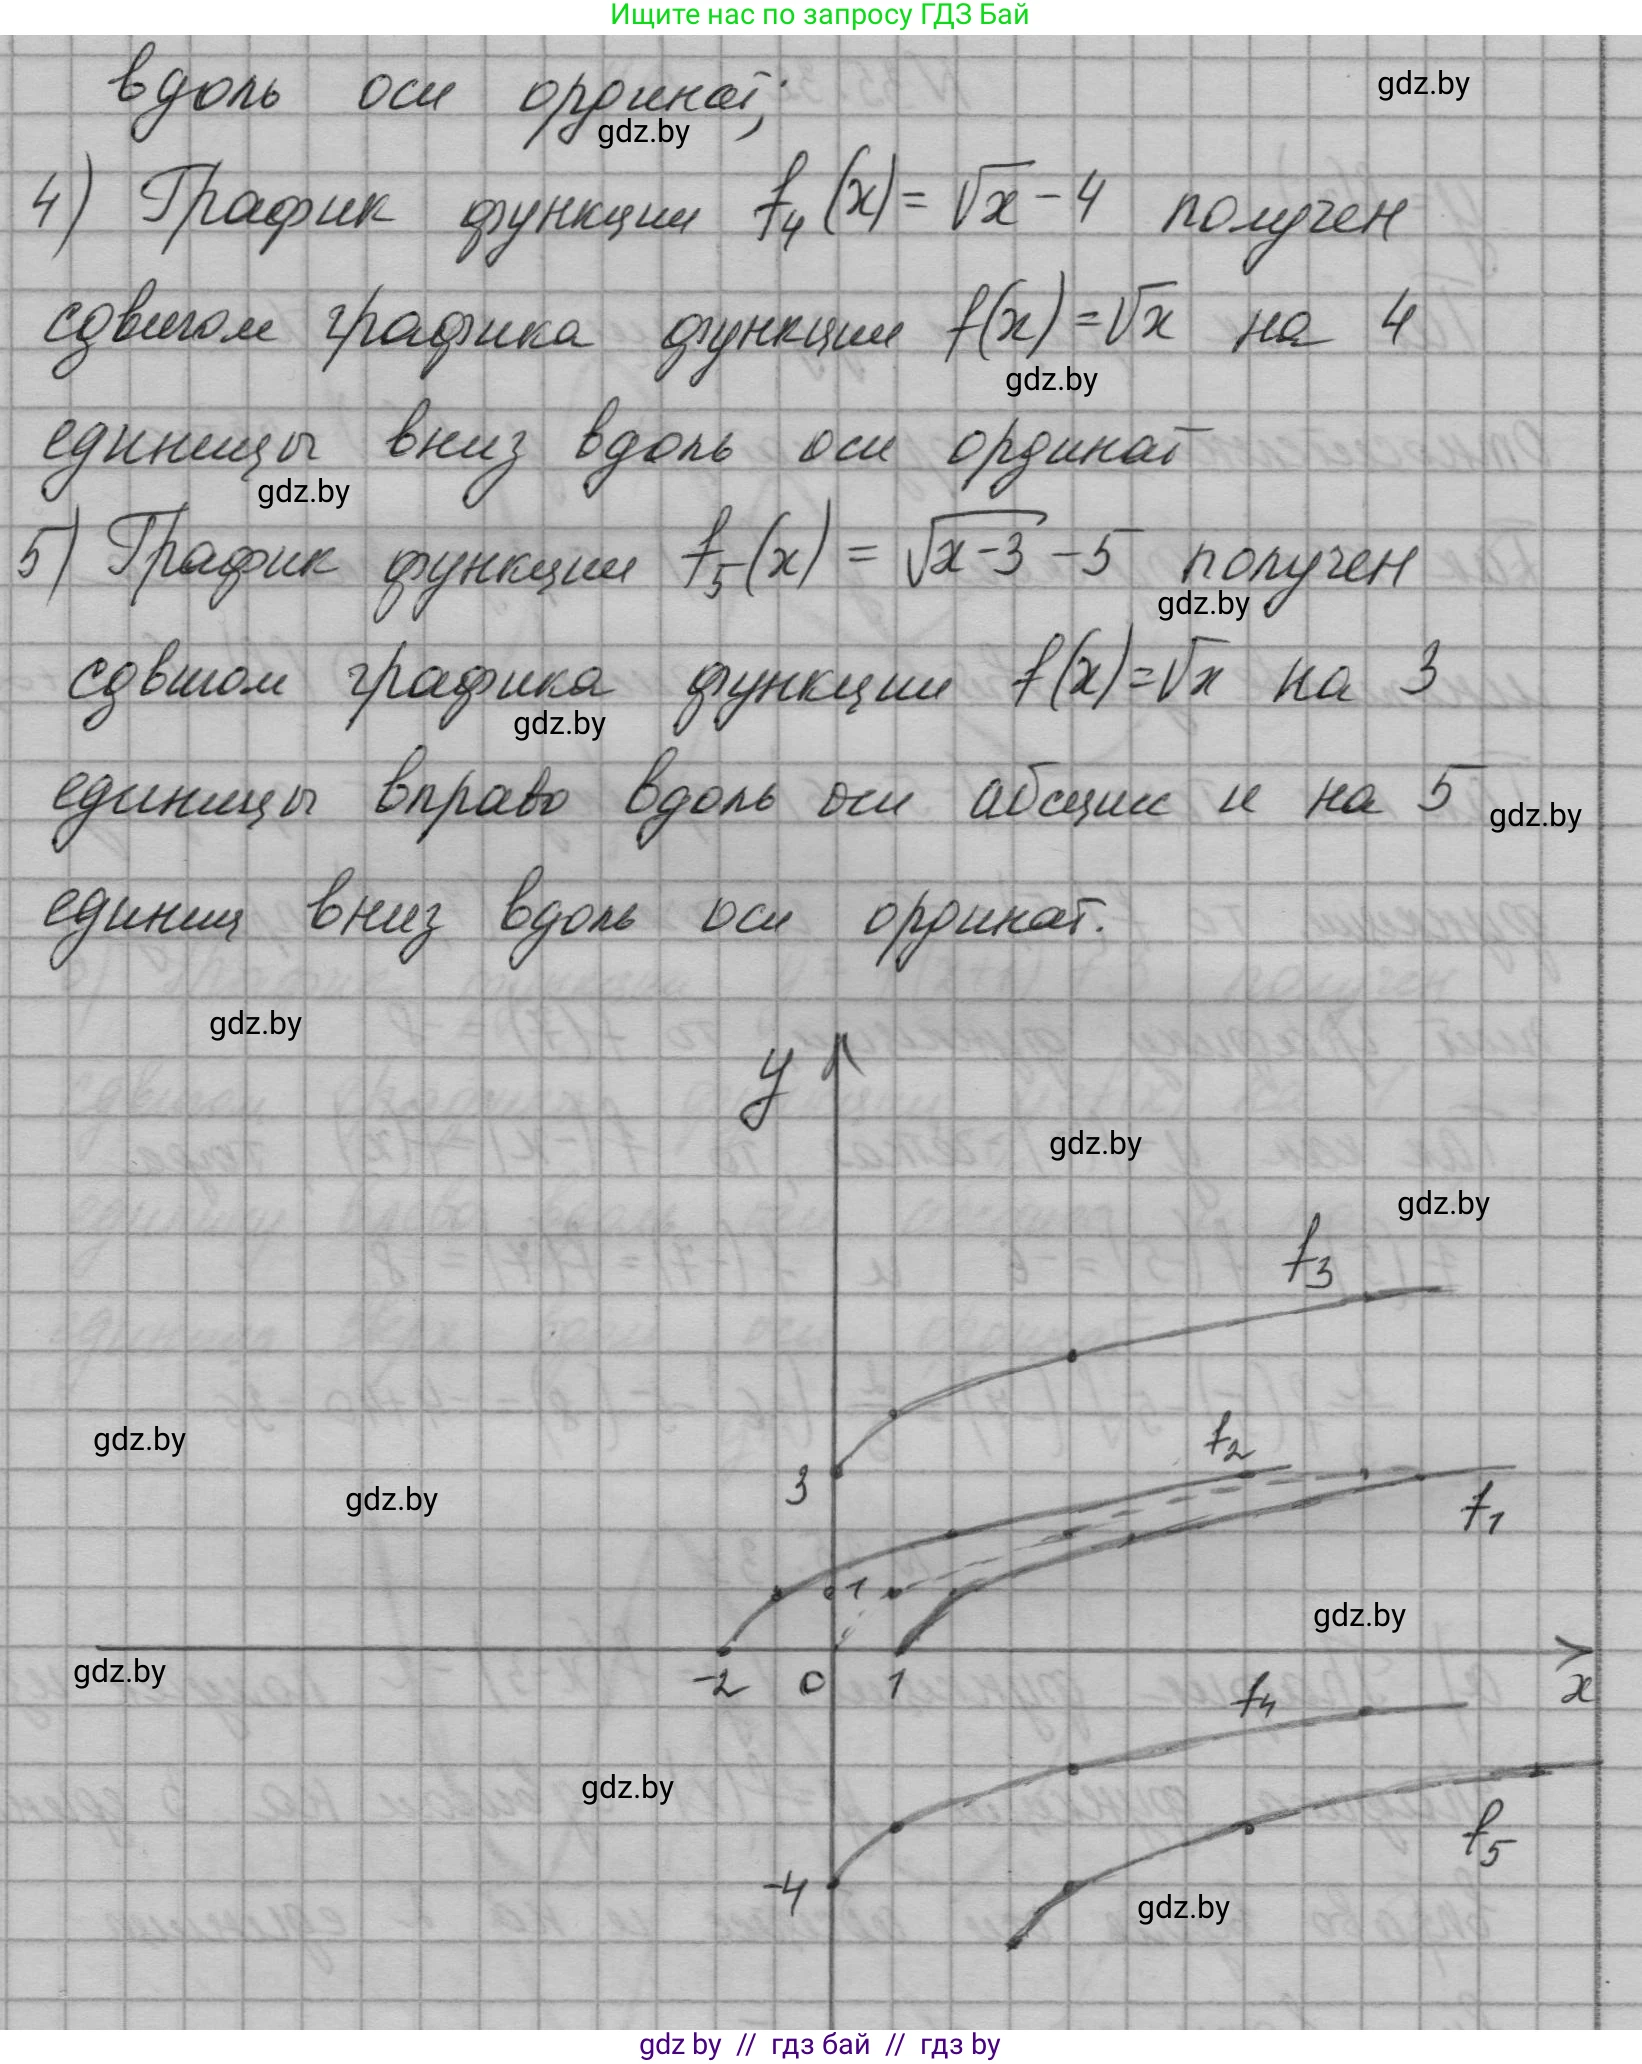 Ищите нас по запросу ГДЗ Бай
вдоль оси ординат;
gdz.by
gdz.by
4) График функции f₄(x) = √x - 4 получен
сдвигом графика функции f(x) = √x на 4
gdz.by
единицы вниз вдоль оси ординат
gdz.by
5) График функции f₅(x) = √(x-3) - 5 получен
gdz.by
сдвигом графика функции f(x) = √x на 3
gdz.by
единицы вправо вдоль оси абсцисс и на 5
gdz.by
единиц вниз вдоль оси ординат.
gdz.by
y
gdz.by
gdz.by
f₃
gdz.by
f₂
3
gdz.by
f₁
1
gdz.by
gdz.by
-2 0 1
x
f₄
gdz.by
f₅
-4
gdz.by
gdz by // гдз бай // гдз by